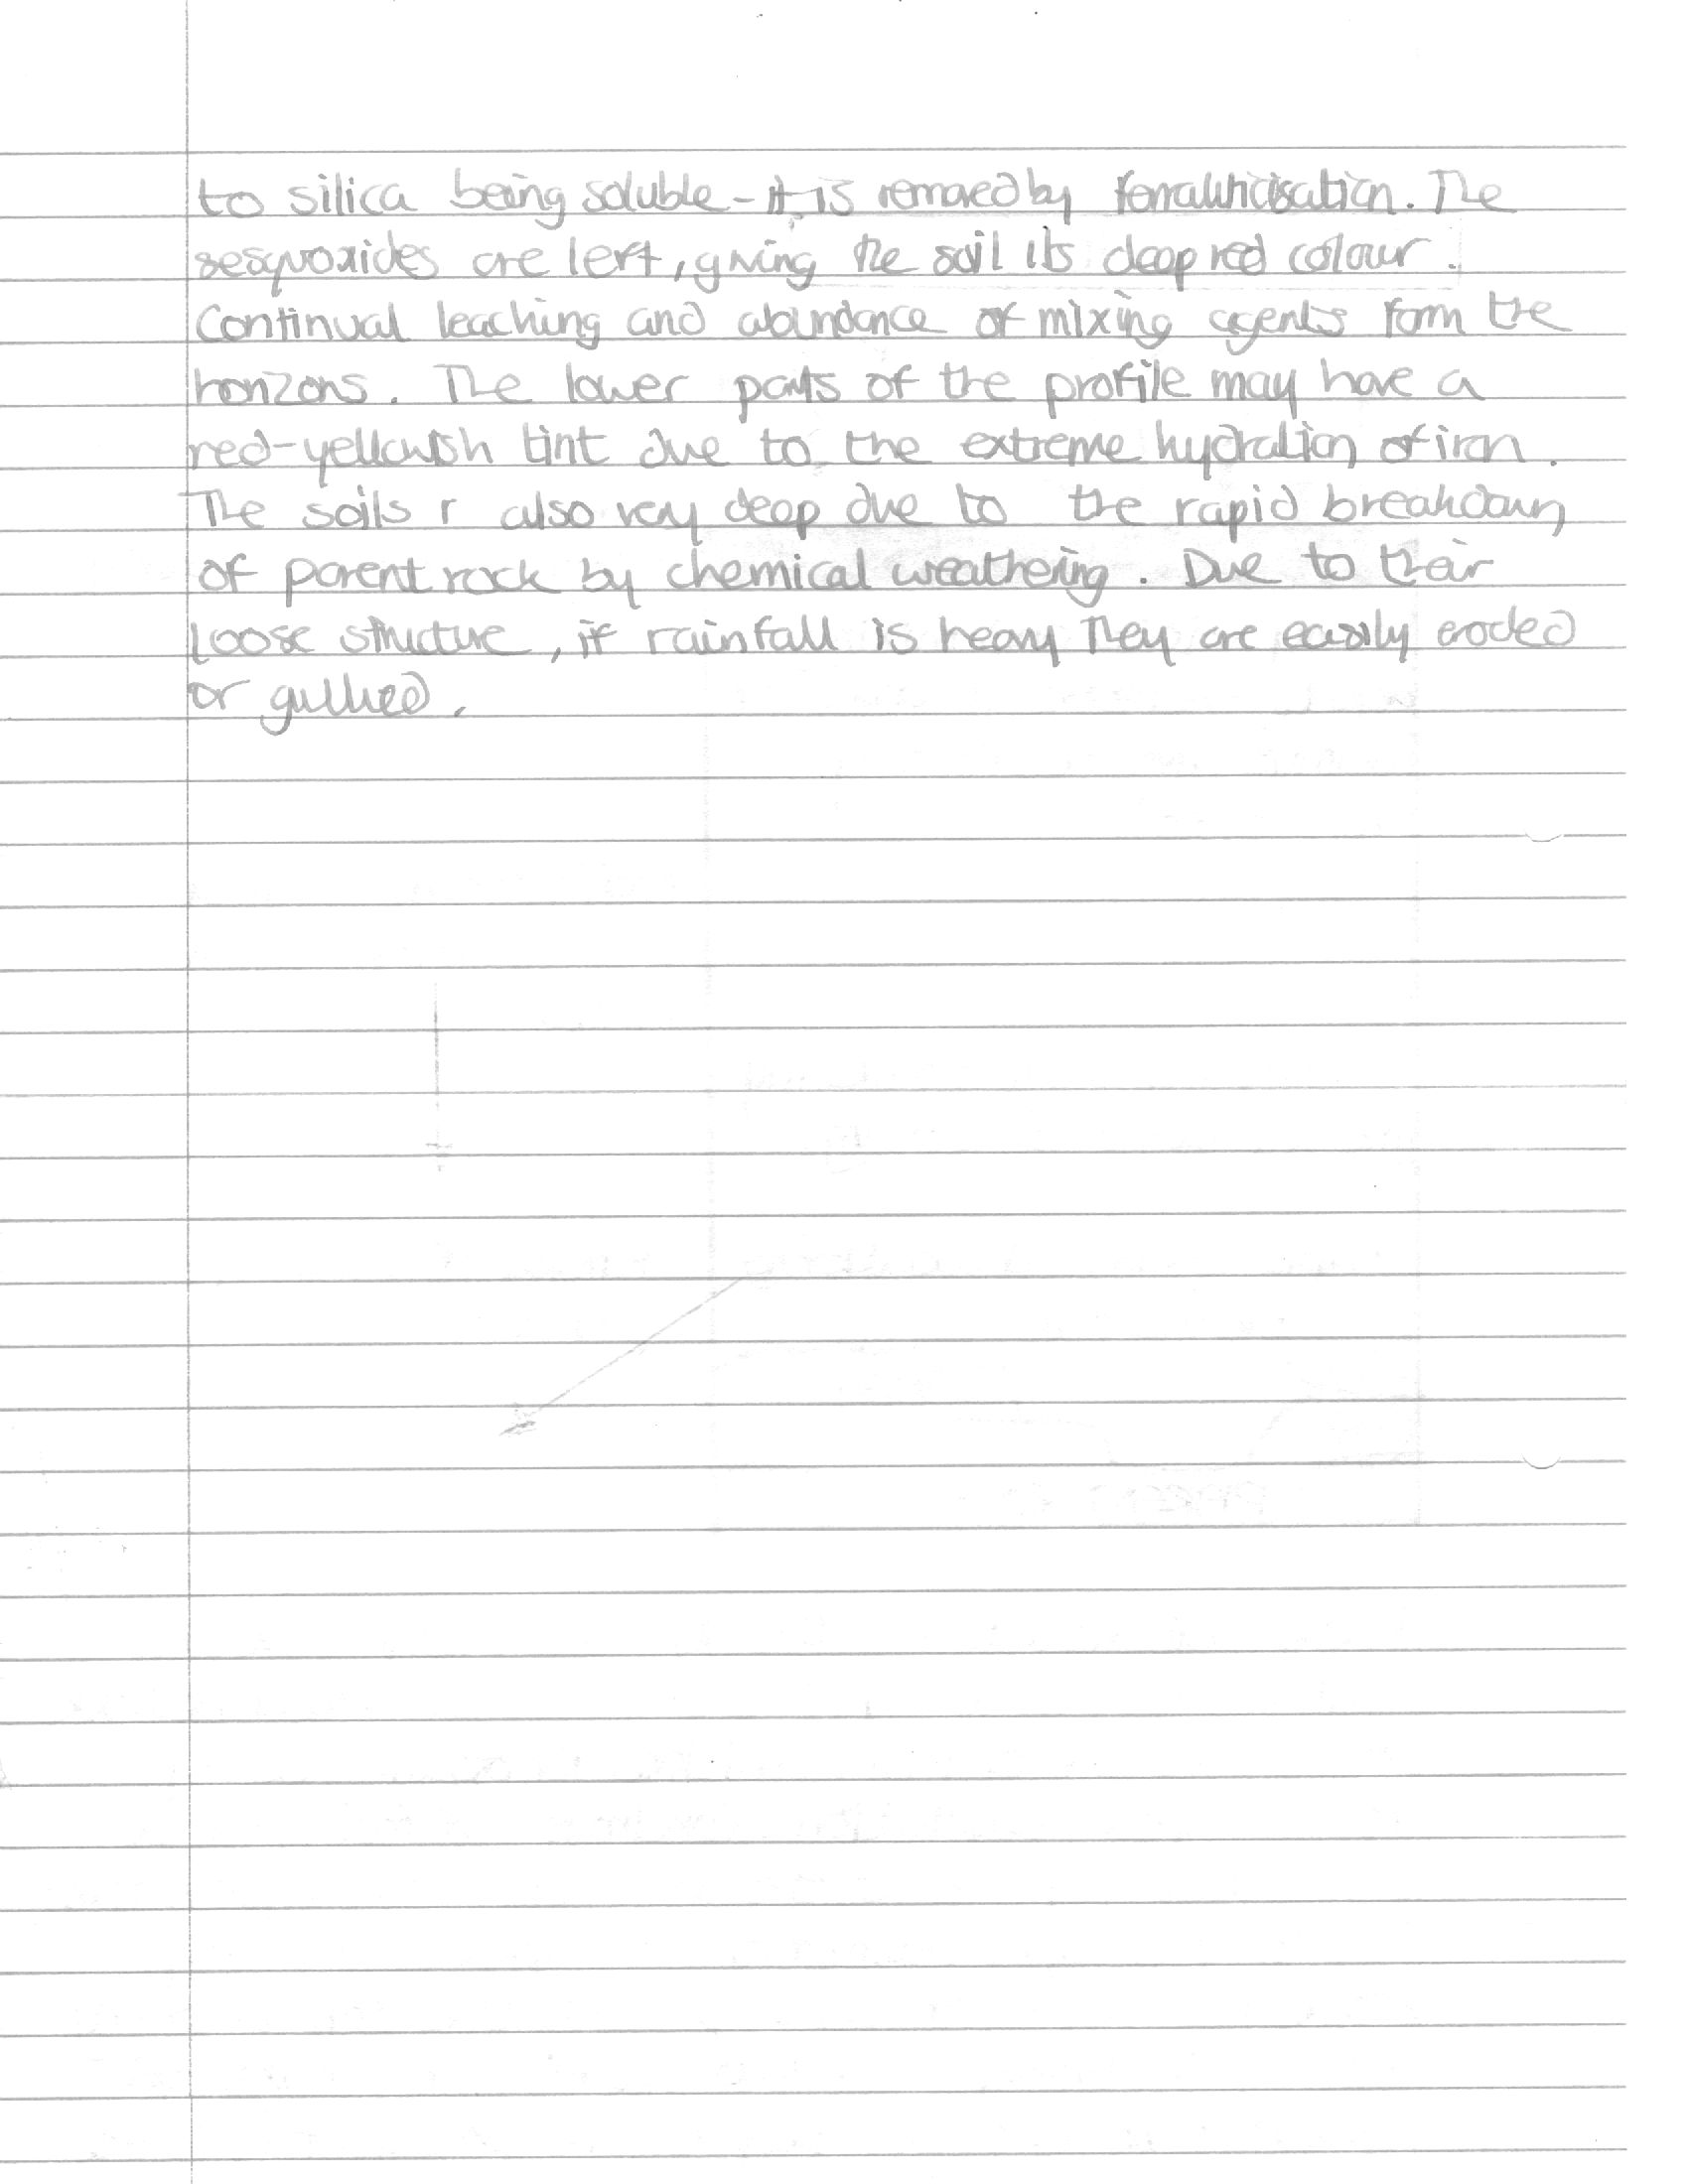 to silica being soluble - it is removed by ferralliticisation. The
sesquoxides are left, giving the soil its deep red colour.
Continual leaching and abundance of mixing agents form the
horizons. The lower parts of the profile may have a
red-yellowish tint due to the extreme hydration of iron.
The soils r also very deep due to the rapid breakdown
of parent rock by chemical weathering. Due to their
loose structure, if rainfall is heavy they are easily eroded
or gullied.